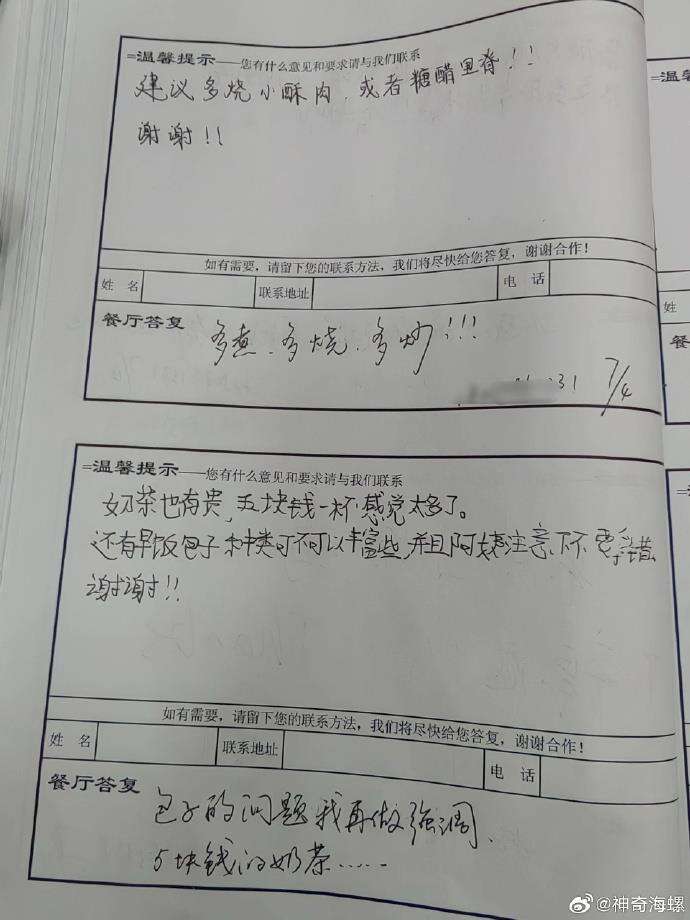 =温馨提示——您有什么意见和要求请与我们联系
建议多烧小酥肉、或者糖醋里脊!!
谢谢!!
如有需要，请留下您的联系方法，我们将尽快给您答复，谢谢合作！
姓 名 联系地址 电 话
餐厅答复
多煮、多烧、多炒!!!
31 7/4
=温馨提示——您有什么意见和要求请与我们联系
奶茶也有贵，五块钱一杯感觉太多了。
还有早饭包子种类可不可以丰富些，并且阿姨注意下不要拿错
谢谢!!
如有需要，请留下您的联系方法，我们将尽快给您答复，谢谢合作！
姓 名 联系地址 电 话
餐厅答复
包子的问题我再做强调、
5块钱的奶茶……
=温馨
姓
餐厅
@神奇海螺